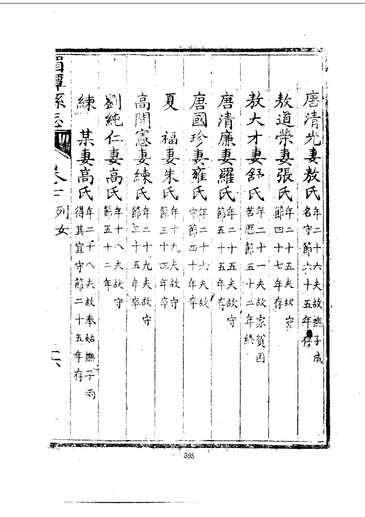 唐清光妻敖氏年二十六夫故撫子成
名守節六十五年存
敖道榮妻張氏年二十五夫故守
節四十七年存
敖大才妻舒氏年二十一夫故家貧因
苦歷節五十二年終
唐清廉妻羅氏年二十五夫故守
節五十五年存
唐國珍妻雍氏年二十六夫故
守節二十年存
夏　福妻朱氏年十九夫故守
節三十四年卒
高開憲妻練氏年二十九夫故守
節三十五年卒
劉純仁妻高氏年十八夫故守
節五十二年
練　某妻高氏年二十八夫故奉姑撫子兩
得其宜守節二十五年存
湄潭縣志
列女
595